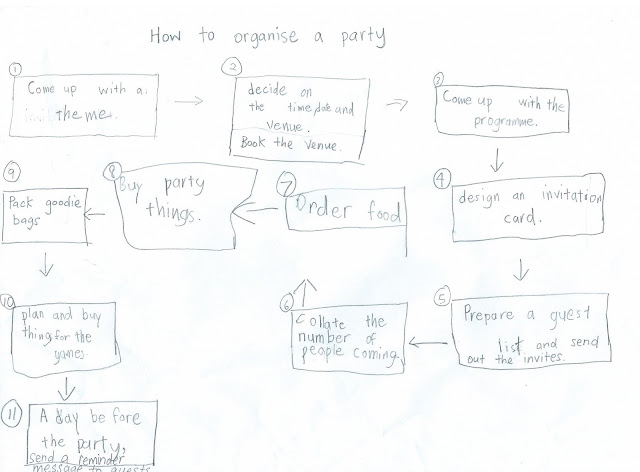 How to organise a party
1
Come up with a
theme.
2
decide on
the time/date and
venue.
Book the Venue.
3
Come up with the
programme.
4
design an invitation
card.
5
Prepare a guest
list and send
out the invites.
6
Collate the
number of
people coming.
7
Order food
8
Buy party
things.
9
Pack goodie
bags
10
plan and buy
things for the
games.
11
A day before
the party,
send a reminder
message to guests